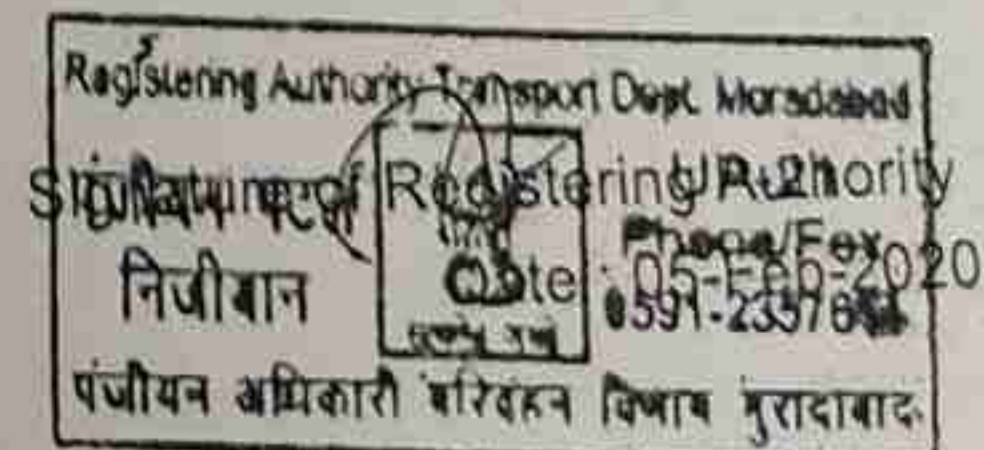 Registering Authority Transport Dept. Moradabad
Signature of Registering Authority
U.P.-21
Phone/Fax
निजीबान
Date : 05-Feb-2020
0591-
पंजीयन अधिकारी परिवहन विभाग मुरादाबाद